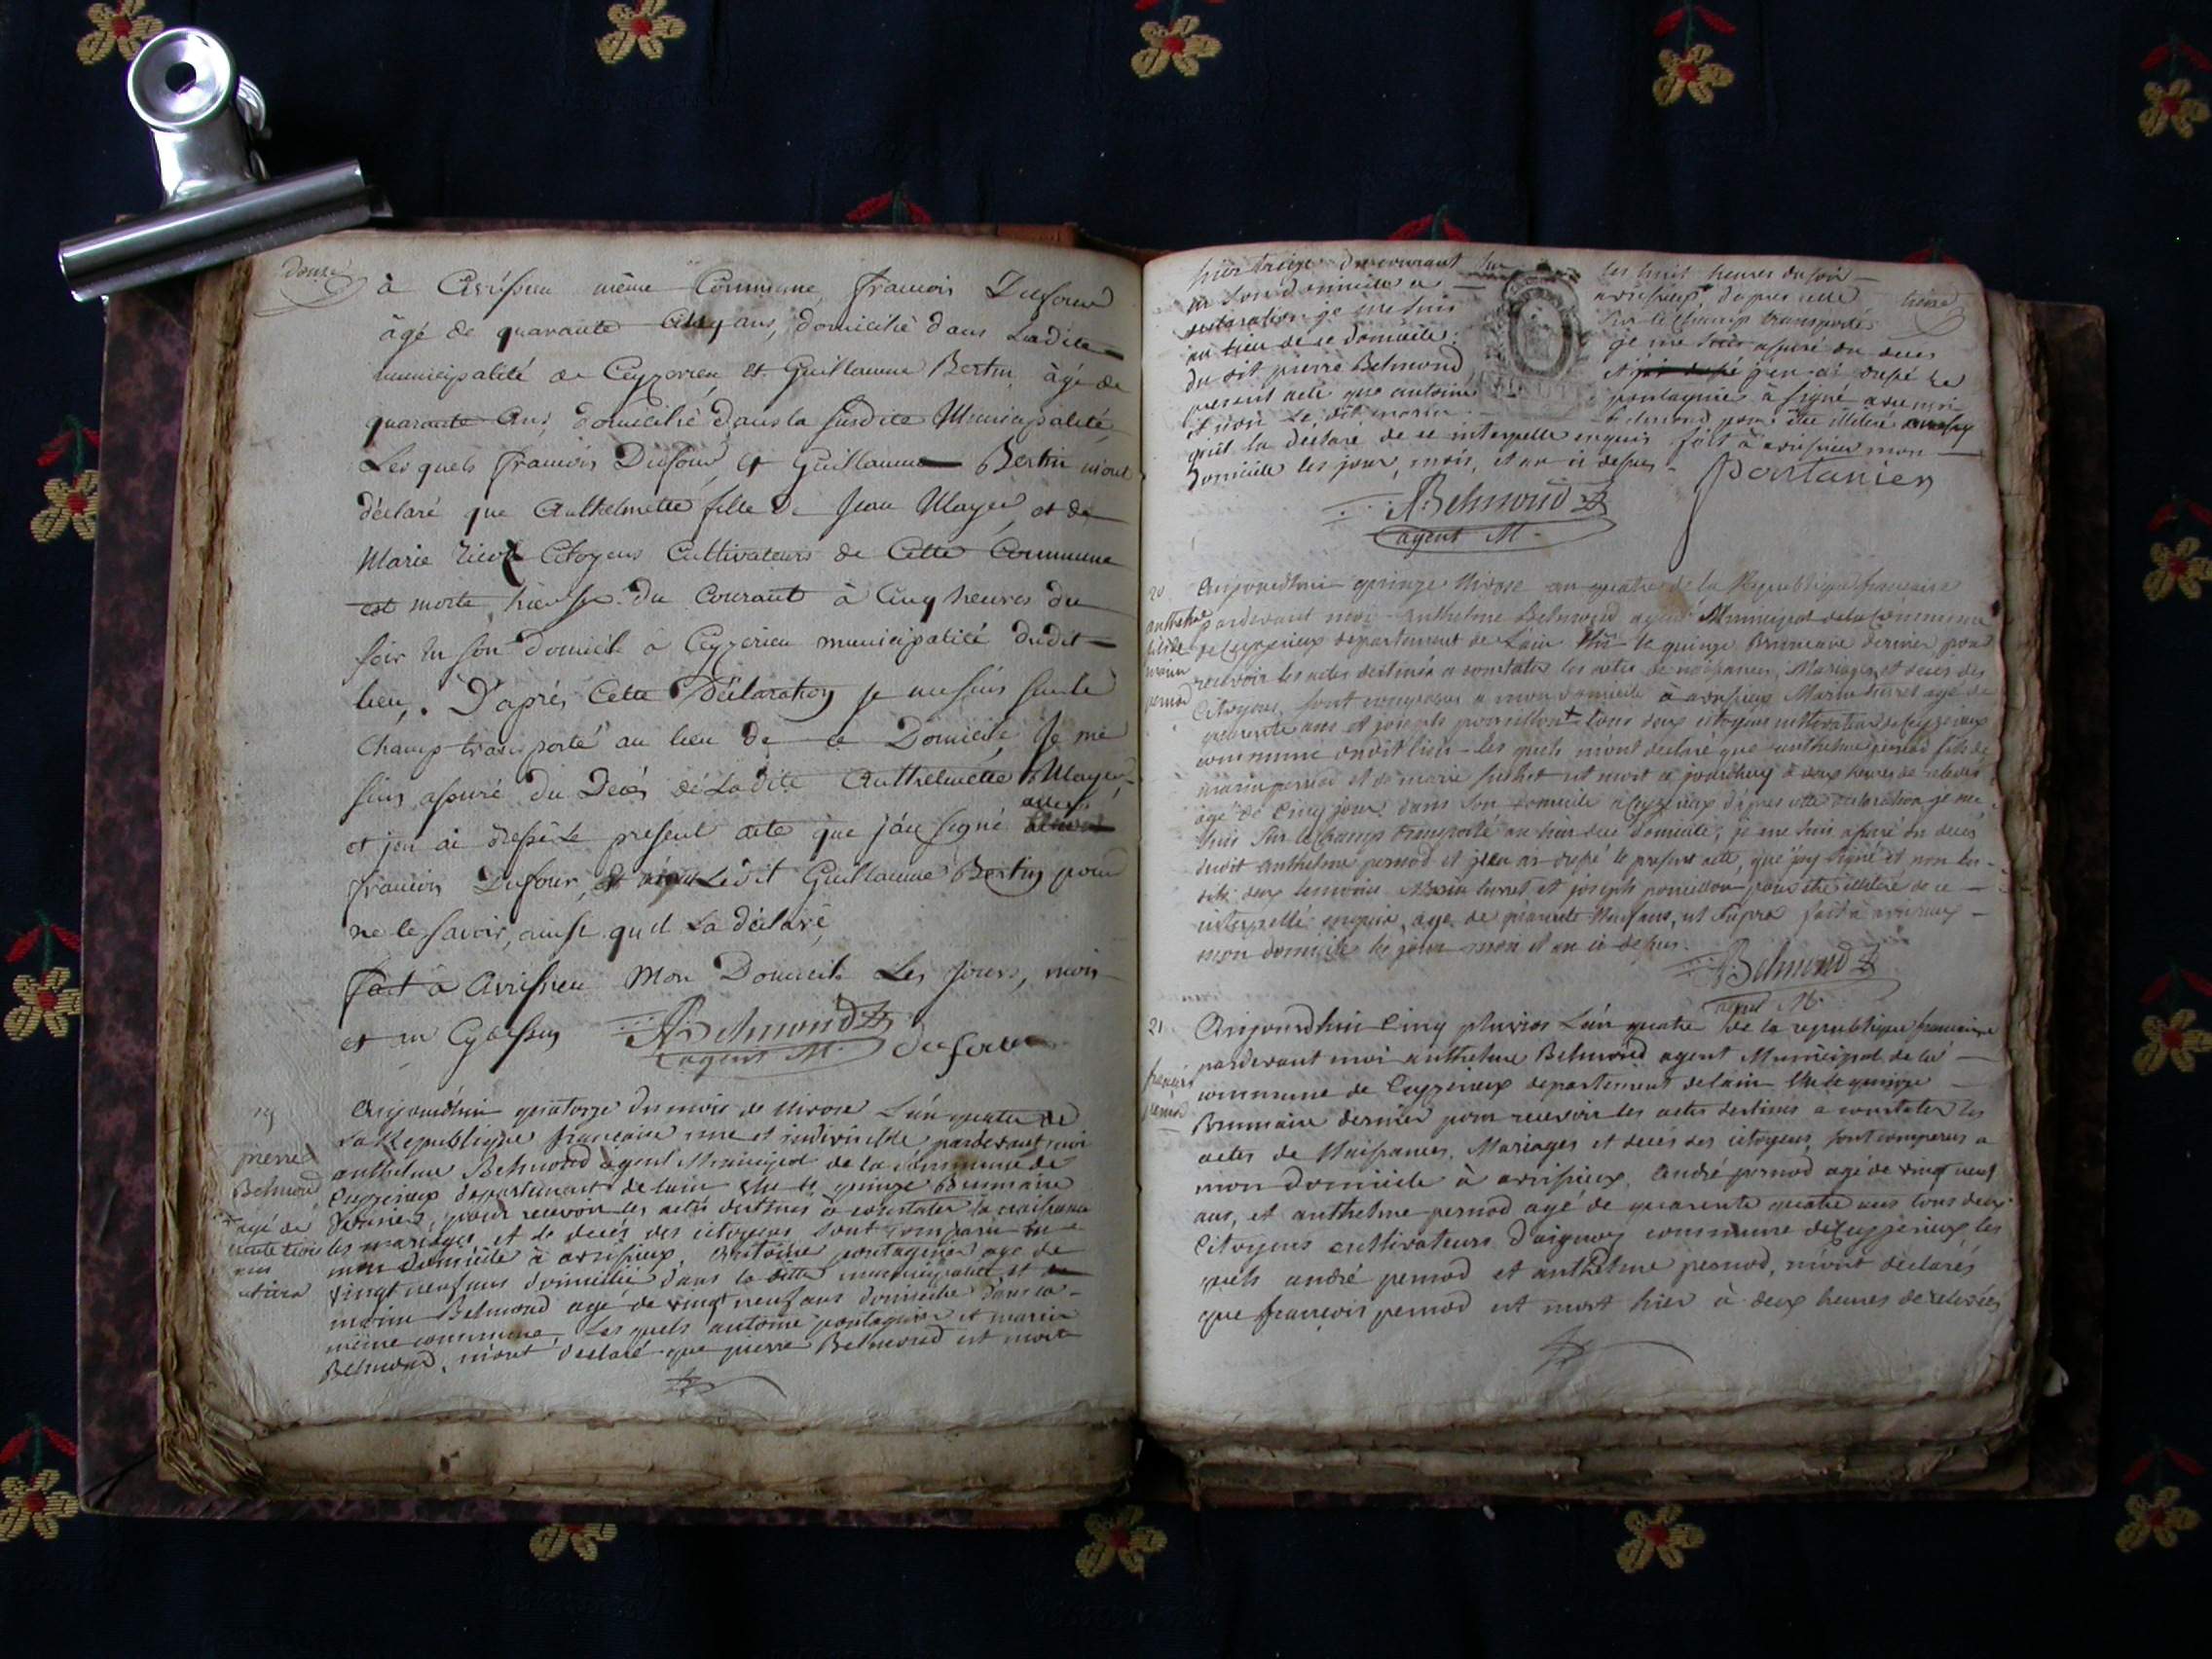 douze
à Avrissieu même Commune, francois Dufour
âgé de quarante Cinq ans, domicilié dans Ladite
municipalité de Ceyzerieu et Guillaume Bertin âgé de
quarante Ans, domicilié dans la susdite Municipalité
Lesquels francois Dufour et Guillaume Bertin m'ont
déclaré que Anthelmette fille de Jean Mayer et de
Marie Citoyens Cultivateurs de Cette Commune
est morte, hier du Courant à Cinq heures du
soir en son Domicile à Ceyzerieu municipalité dudit
lieu. D'après Cette Déclaration je me suis sur le
Champ transporté au lieu de ce Domicile Je me
suis assuré du Decés de Ladite Anthelmette Mayer
et jen ai dressé Le present acte que j'ai signé avec
francois Dufour, et Ledit Guillaume Bertin pour
ne le savoir, ainsi qu'il La déclaré
fait à Avrissieu Mon Domicile Les Jours, mois
et an Cydessus
ABelmond agent M. dufour
19
pierre
Belmond
agé de
ans
Aujourdhui quatorze du mois de Nivose L'an quatre de
La Republique francaise une et indivisible pardevant moi
anthelme Belmond agent Municipal de la Commune de
Ceyzerieux departement de lain elu le quinze Brumaire
dernier, pour recevoir les actes destinés à constater la naissance
les mariages et le decés des citoyens sont comparu en
mon domicile à avrissieux, antoine pontagnier age de
vingt neuf ans domicilié dans la ditte municipalité et
marin Belmond agé de vingt neuf ans domicilié dans la
même commune, Les quels antoine pontagnier et marin
Belmond, m'ont declaré que pierre Belmond est mort
hier treize du courant sur les huit heures du soir
en son domicile a avrissieux, dapres cette treize
declaration je me suis sur le Champ transporté
au lieu de ce domicile, je me suis assuré du deces
du dit pierre Belmond et j'en ai dressé le
present acte que antoine pontagnier à signé avec moi
et non le dit marin Belmond pour être illiteré
qu'il la declaré de ce interpellé enquis fait à avrissieu mon
Domicile les jour, mois, et an ci dessus. pontanier
ABelmond
agent M.
20
anthelme
fils de
marin
pernod
Aujourdhui quinze Nivose an quatre de la Republique francaise
pardevant moi Anthelme Belmond agent Municipal de la commune
de Ceyzerieux departement de Lain elu le quinze Brumaire dernier, pour
recevoir les actes destinés a constater les actes de naissances, Mariages et deces des
Citoyens, sont comparus a mon domicile a avrissieux Marin turret agé de
quarente ans et joseph pouillou tous deux citoyens cultivateurs de Ceyzerieux
commune dudit lieu les quels m'ont declaré que anthelme pernod fils de
marin pernod et de marie est mort a jourdhuy à deux heures de relevés
agé de Cinq jour dans son domicile a Ceyzerieux d'apres cette declaration je me
suis sur le Champ transporté au lieu de ce domicile, je me suis assuré du deces
dudit anthelme pernod et j'en ai dressé le present acte, que j'ay signé et non les
dits deux temoins Marin turret et joseph pouillou pour être illiteré de ce
interpellé enquis, age de quarente neuf ans, ut supra fait à avrissieux
mon domicile les jour mois et an ci dessus.
ABelmond
agent M.
21
francois
pernod
Aujourdhui Cinq pluvios L'an quatre de la republique francaise
pardevant moi anthelme Belmond agent Municipal de la
commune de Ceyzerieux departement de lain elu le quinze
Brumaire dernier pour recevoir les actes destinés a constater les
actes de Naissances, Mariages et decés des citoyens, sont comparus a
mon domicile à avrissieux, andré pernod agé de vingt neuf
ans, et anthelme pernod agé de quarente quatre ans tous deux
Citoyens cultivateurs d'aignoz commune de Ceyzerieux, les
quels andré pernod et anthelme pernod, m'ont déclarés
que françois pernod est mort hier à deux heures de relevées